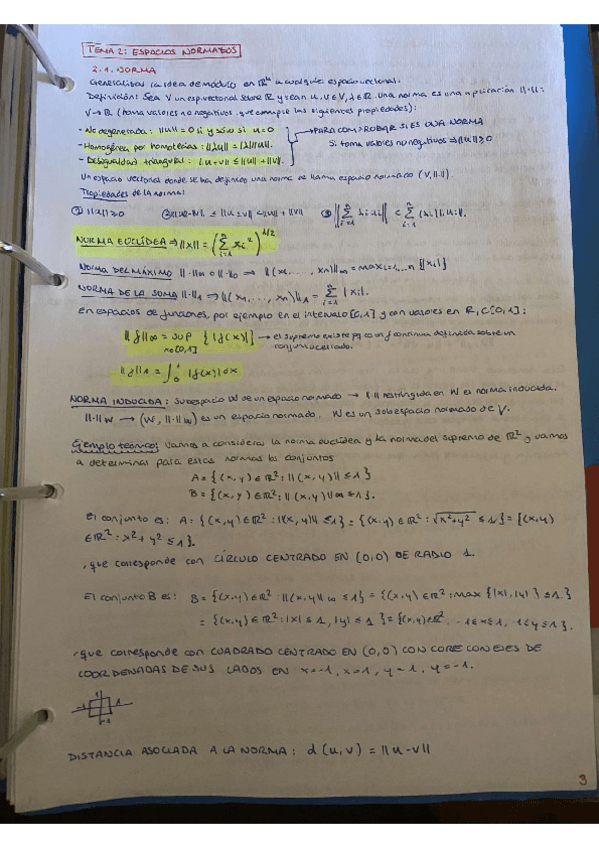 TEMA 2: ESPACIOS NORMADOS
2.1. NORMA
Generalizar la idea de módulo en ℝⁿ a cualquier espacio vectorial.
Definición: Sea V un esp. vectorial sobre ℝ y sean u, v ∈ V, λ ∈ ℝ. Una norma es una aplicación ||·||:
V→ℝ (toma valores no negativos, que cumple las siguientes propiedades):
- No degenerada: ||u|| = 0 si y solo si u = 0
- Homogénea por homotecias: ||λu|| = |λ| ||u||. → PARA COMPROBAR SI ES UNA NORMA
- Desigualdad triangular: ||u+v|| ≤ ||u|| + ||v||. Si toma valores no negativos ⇒ ||u|| ≥ 0
Un espacio vectorial donde se ha definido una norma se llama espacio normado (V, ||·||).
Propiedades de la norma:
① ||u|| ≥ 0 ② ≤ ||u ± v|| ≤ ||u|| + ||v|| ③
NORMA EUCLÍDEA ⇒ ||x|| = (∑ᵢ₌₁ⁿ xᵢ²)^1/2
NORMA DEL MÁXIMO ||·||∞ o ||·||₀ → ||(x₁, ..., xn)||∞ = máx i=1...n {|xi|}
NORMA DE LA SUMA ||·||₁ → ||(x₁, ..., xn)||₁ = ∑ᵢ₌₁ⁿ |xi|.
en espacios de funciones, por ejemplo en el intervalo [0,1] y con valores en ℝ, C[0,1]:
||f||∞ = SUP x∈[0,1] {|f(x)|} → el supremo existe pq es f continua definida sobre un
conjunto cerrado.
||f||₁ = ∫₀¹ |f(x)| dx
NORMA INDUCIDA: Subespacio W de un espacio normado → ||·|| restringida en W es norma inducida.
||·||w → (W, ||·||w) es un espacio normado. W es un subespacio normado de V.
Ejemplo teórico: Vamos a considerar la norma euclídea y la norma del supremo de ℝ² y vamos
a determinar para estas normas los conjuntos
A = {(x,y) ∈ ℝ² : ||(x,y)|| ≤ 1}
B = {(x,y) ∈ ℝ² : ||(x,y)||∞ ≤ 1}.
El conjunto es: A = {(x,y) ∈ ℝ² : ||(x,y)|| ≤ 1} = {(x,y) ∈ ℝ² : √x²+y² ≤ 1} = {(x,y)
∈ ℝ² : x² + y² ≤ 1}.
, que corresponde con CÍRCULO CENTRADO EN (0,0) DE RADIO 1.
El conjunto B es: B = {(x,y) ∈ ℝ² : ||(x,y)||∞ ≤ 1} = {(x,y) ∈ ℝ² : max {|x|, |y|} ≤ 1}
= {(x,y) ∈ ℝ² : |x| ≤ 1, |y| ≤ 1} = {(x,y) ∈ ℝ² : -1 ≤ x ≤ 1, -1 ≤ y ≤ 1}.
, que corresponde con CUADRADO CENTRADO EN (0,0) CON CORTE CON EJES DE
COORDENADAS DE SUS LADOS EN x=-1, x=1, y=1, y=-1.
DISTANCIA ASOCIADA A LA NORMA: d(u,v) = ||u-v||
3